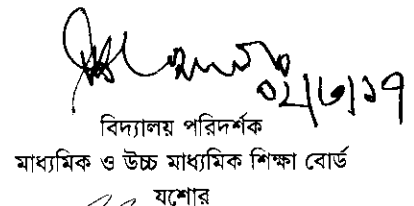 ০২/৩/১৭
বিদ্যালয় পরিদর্শক
মাধ্যমিক ও উচ্চ মাধ্যমিক শিক্ষা বোর্ড
যশোর